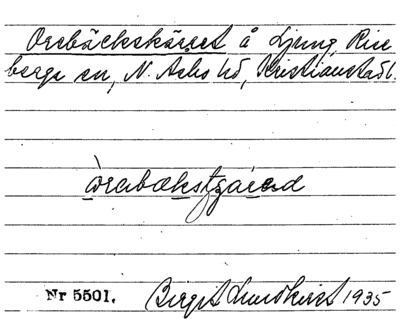 Orebäckskärret å Ljung, Rise
berga sn, N. Åsbo hd, Kristianstads l.
òrabækstɟærad
Nr 5501.
Birgit Lundkvist 1935